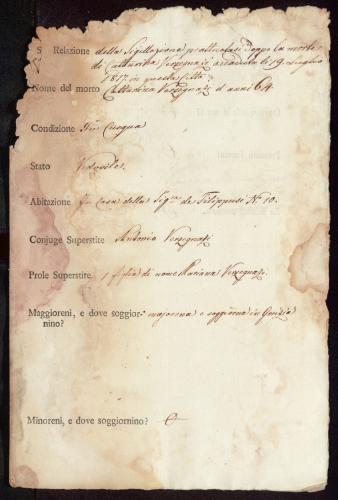 S Relazione della Sigillazione pratticatasi doppo la morte
di Cattarina Verzegnasi accaduta li 19. Luglio
1817. in questa Città
Nome del morto Cattarina Verzegnasi d'anni 64.
Condizione Fù Cuoqua
Stato Vedovile.
Abitazione In Casa della Sig.ra de Filippusi No. 10.
Conjuge Superstite Antonio Verzegnasi
Prole Superstite 1 figlia di nome Mariana Verzegnasi.
Maggioreni, e dove soggior- majorena e soggiorna in Gorizia
nino?
Minoreni, e dove soggiornino?